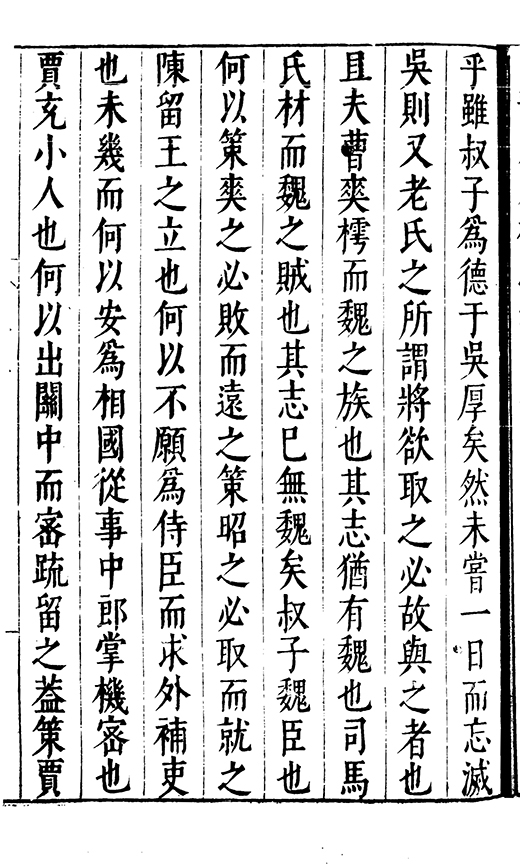 乎雖叔子爲德于吳厚矣然未嘗一日而忘滅
吳則又老氏之所謂將欲取之必故與之者也
且夫曹爽樗而魏之族也其志猶有魏也司馬
氏材而魏之賊也其志已無魏矣叔子魏臣也
何以策爽之必敗而遠之策昭之必取而就之
陳留王之立也何以不願爲侍臣而求外補吏
也未幾而何以安爲相國從事中郎掌機密也
賈充小人也何以出關中而密疏留之葢策賈